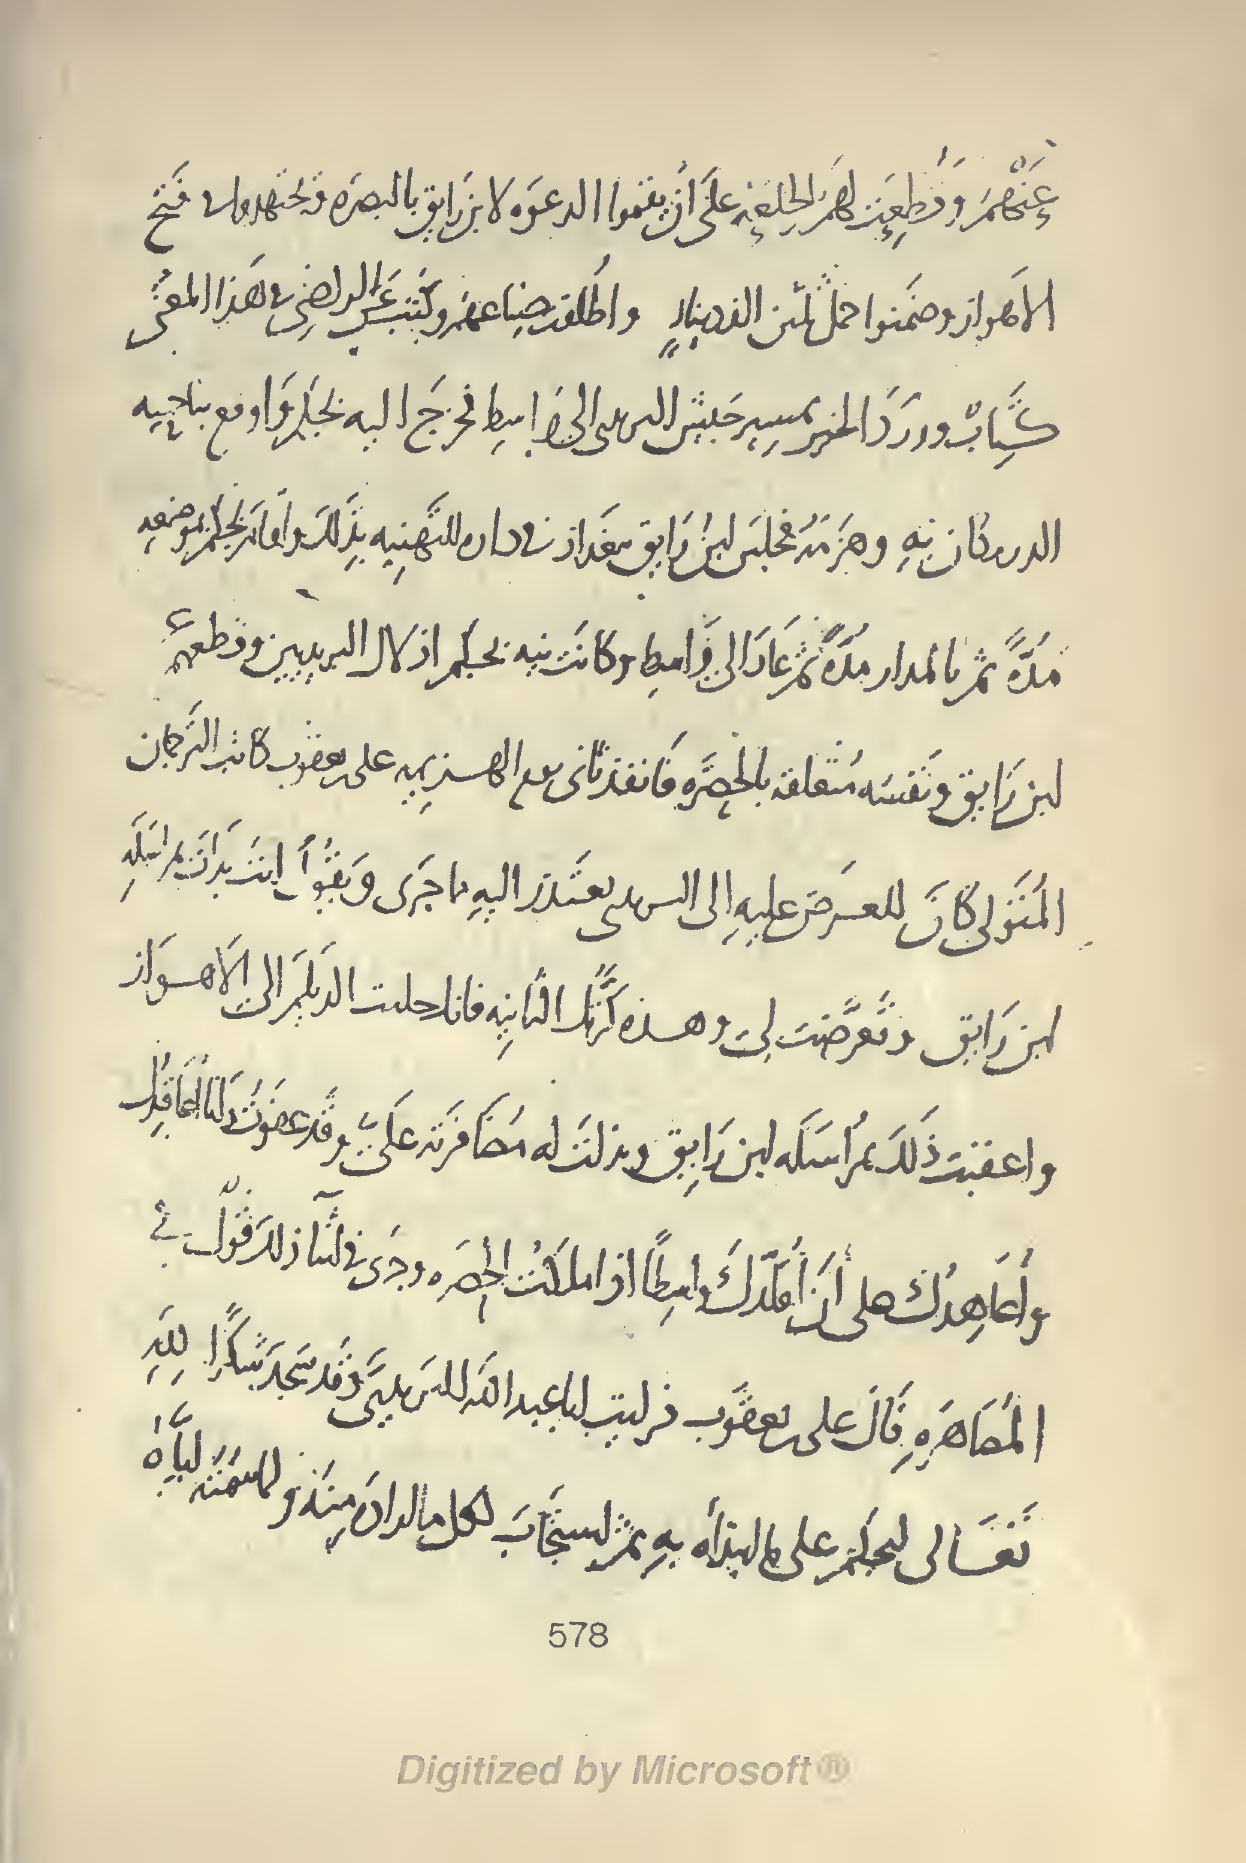 عَنْهُم وقُطِعَت لهم الخلعة على أن يقيموا الدعوه لابن رَايق بالبصره ويجتهدوا في فتح
الاهواز وضمنوا حمل ثلثين الف دينارٍ واطلقت ضياعهم وكتب عَن الراضى في هَذا المعنى
كتابٌ ووَرَدَ الخبر بمسير جيش البريدى الى واسط فخرَج اليه بجكم وَاوقع بناحِيه
الدرمكان بِهِ وهزَمَهُ فجلسَ ابن رَايق ببغداد في داره للتهنِيه بذَلك وأقام بجكم بموضعه
مدّةً ثم بالمدار مدّةً ثم عَادَ الى وَاسط وكانت نيه بجكم اذلال البريديين وقطعهم
ابن رَايق ونَفسَه مُتعلقه بالحضره فانفذ ثانى يوم الهزيمه على بن يعقوب كاتب الترجمان
المُتولى كان للعرض عليهِ الى البريدى يعتذر اليهِ مما جَرَى وَيقُولُ انتَ بَدأتَ بمراسَلَهِ
ابن رَايق وتعرَّضت لى وهذه كَرَّتك الثانِيه فانك حملت الديلمَ الى الاهواز
واعقبت ذلكَ بمرُاسَلَه ابن رَايق وبذلتَ له مضَافرَته علىّ وقد عفَوتُ
واُعَاهِدُك على أن اُقلّدكَ واسطًا اذا ملكتُ الحضره وجَرى في اثنا ذلكَ قولٌ في
المُصَاهَرهِ قَالَ على بن يعقوب فرايت ابا عبد الله البريديّ وَقد سَجدَ شكرًا لِلهِ
تعَالى لبجكم على ما ابتدأه بهِ ثم استجَابَ لكل ما اراد منه
578
Digitized by Microsoft®